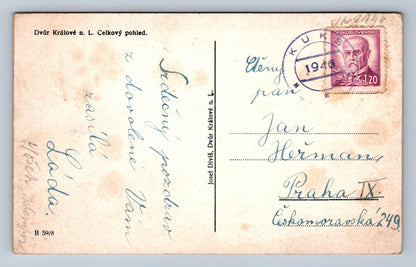 Dvůr Králové n. L. Celkový pohled.
Srdečný pozdrav
z dovolené Vám
zasílá
Láďa.
B 59/8
Josef Diviš, Dvůr Králové n. L.
KUKS
1946
ČESKOSLOVENSKO
1.20
Ctěný
pan
Jan
Heřman,
Praha IX.
Českomoravská 249.